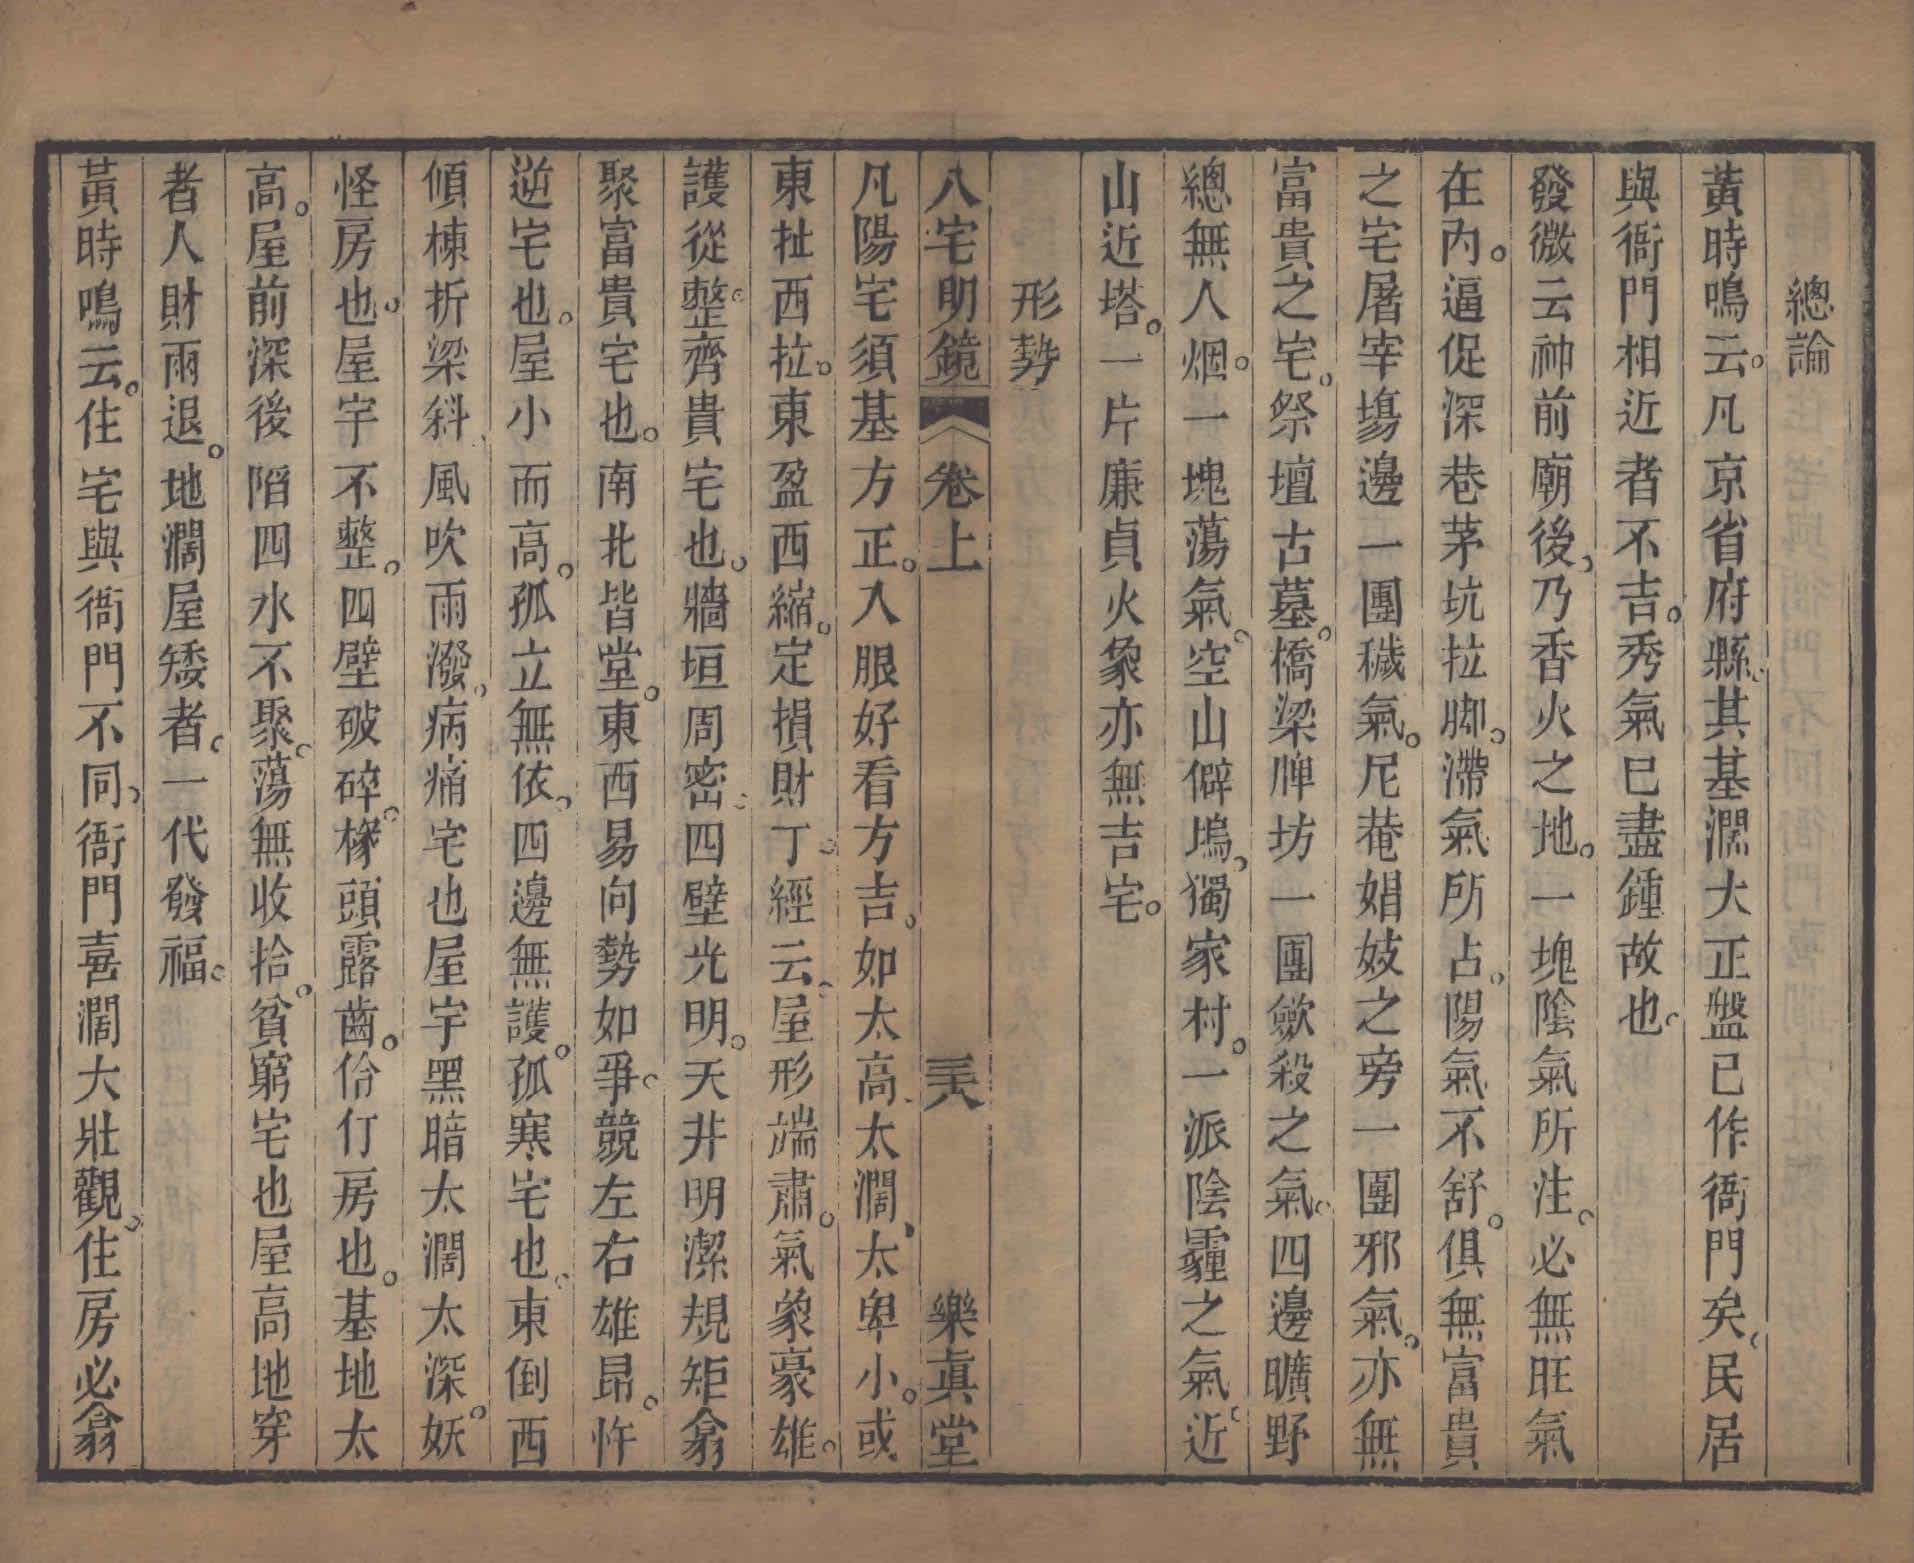 總論
黃時鳴云。凡京省府縣。其基濶大正盤已作衙門矣。民居
與衙門相近者不吉。秀氣已盡鍾故也。
發微云神前廟後。乃香火之地。一塊陰氣所注。必無旺氣
在內。逼促深巷茅坑拉脚。滯氣所占。陽氣不舒。俱無富貴
之宅屠宰塲邊一團穢氣。尼菴娼妓之旁一團邪氣。亦無
富貴之宅。祭壇古墓。橋梁牌坊一團歛殺之氣。四邊曠野
總無人烟。一塊蕩氣。空山僻塢。獨家村。一派陰霾之氣。近
山近塔。一片廉貞火象亦無吉宅。
形勢
八宅明鏡 卷上 三十八 樂真堂
凡陽宅須基方正。入眼好看方吉。如太高太濶。太卑小。或
東扯西拉。東盈西縮。定損財丁。經云。屋形端肅。氣象豪雄。
護從整。齊貴宅也。牆垣周密。四壁光明。天井明潔規矩翕
聚富貴宅也。南北皆堂。東西易向勢如爭。競左右雄昂。忤
逆宅也。屋小而高。孤立無依。四邊無護。孤寒宅也。東倒西
傾棟折梁斜。風吹雨潑。病痛宅也屋宇黑暗太濶太深。妖
怪房也。屋宇不整。四壁破碎。椽頭露齒。伶仃房也。基地太
高。屋前深後陷四水不聚。蕩無收拾。貧窮宅也屋高地穿
者人財兩退。地濶屋矮者。一代發福。
黃時鳴云。住宅與衙門不同。衙門喜濶大壯觀。住房必翕